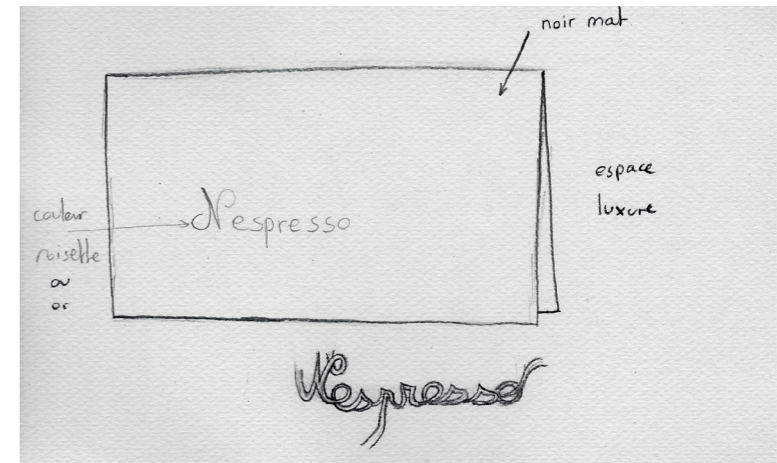 noir mat
espace
luxure
couleur
noisette
ou
or
Nespresso
Nespresso